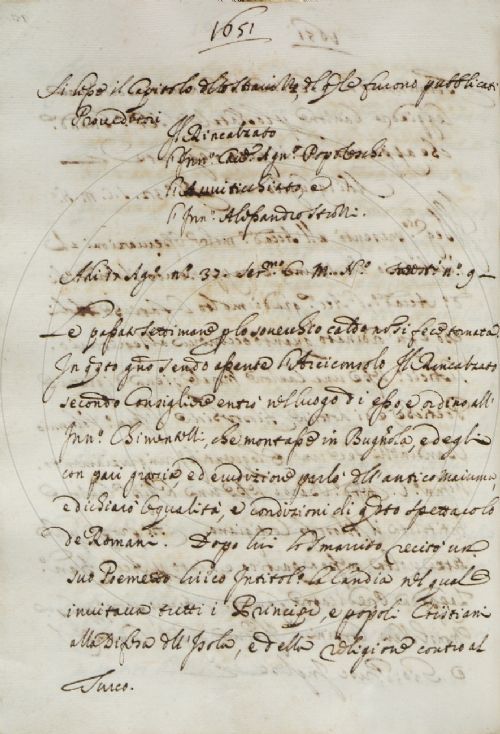 1651
Si lesse il Capitolo dello Stravizzo, del qle furono pubblicati
Proveditori
Il Rincalzato
l'Innº. Cav.r Agnº. Popoleschi
l'Avviticchiato, e
l'Innº. Alessandro Strozzi.
Adi 17 Agº. nº. 37. Ser.mo G. M. Nº.
Le passate settimane p lo soverchio caldo non si fece tornata.
In qsto gno sendo assente l'Arciconsolo Il Rincalzato
secondo Consigliere entrò nel luogo di esso e ordinò all'
Innº. Chimentelli, che montasse in Bugnola, ed egli
con pari grazia ed erudizione parlò dell'antico Maiuma,
e dichiarò le qualità, e condizioni di qsto spettacolo
de Romani. Dopo lui lo Smarrito recitò un
suo Poemetto lirico Intitolº. la Candia nel quale
invitava tutti i Principi, e popoli Cristiani
alla Difesa dell'Isola, e della religione contro al
Turco.